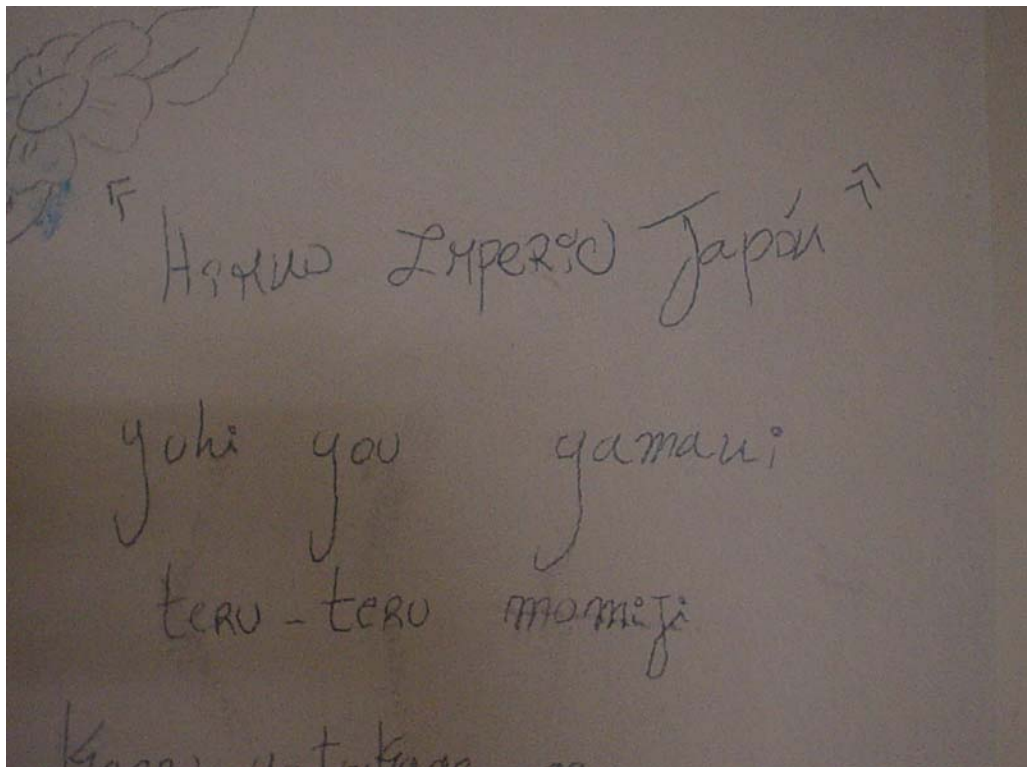 "Himno Imperio Japón"
yuhi you yamani
teru-teru momiji